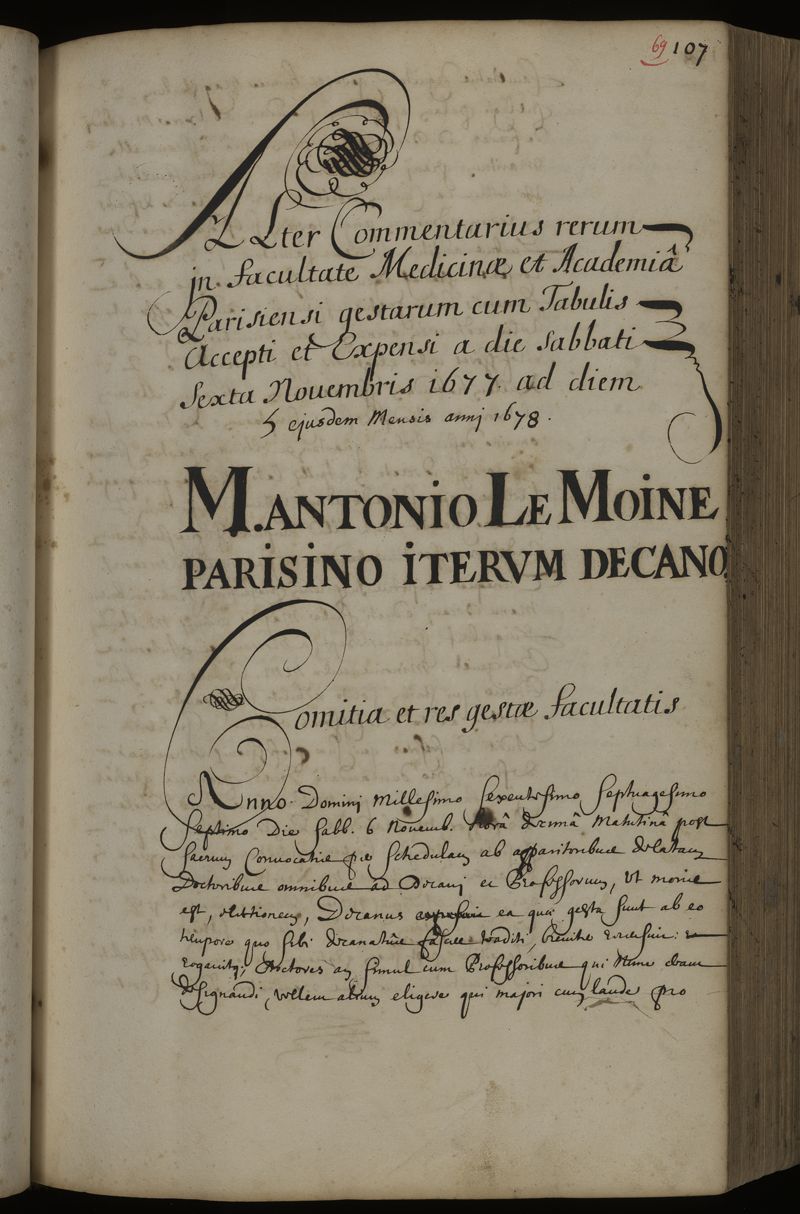 69 107
ALter Commentarius rerum
jn facultate Medicinæ et Academiâ
Parisiensi gestarum cum Tabulis
Accepti et Expensi a die sabbati
Sexta Nouembris 1677. ad diem
5 ejusdem Mensis annj 1678.
M. ANTONIO LE MOINE
PARISINO ITERVM DECANO
Comitia et res gestæ facultatis
Anno Dominj Millesimo sexentesimo septuagesimo
septimo Die sabb. 6 Nouemb. horâ decimâ Matutinâ post
sacrum Convocatis per schedulam ab apparitoribus delatam
Doctoribus omnibus ad Decanj et Professorum, vt moris
est, electionem, Decanus ea quæ gesta sunt ab eo
tempore quo sibi decanatûs fasces traditi, breviter recensuit: et
rogavitq; Doctores an simul cum Professoribus qui Nunc erant
designandi, vellem alium eligere qui majori cum laude pro